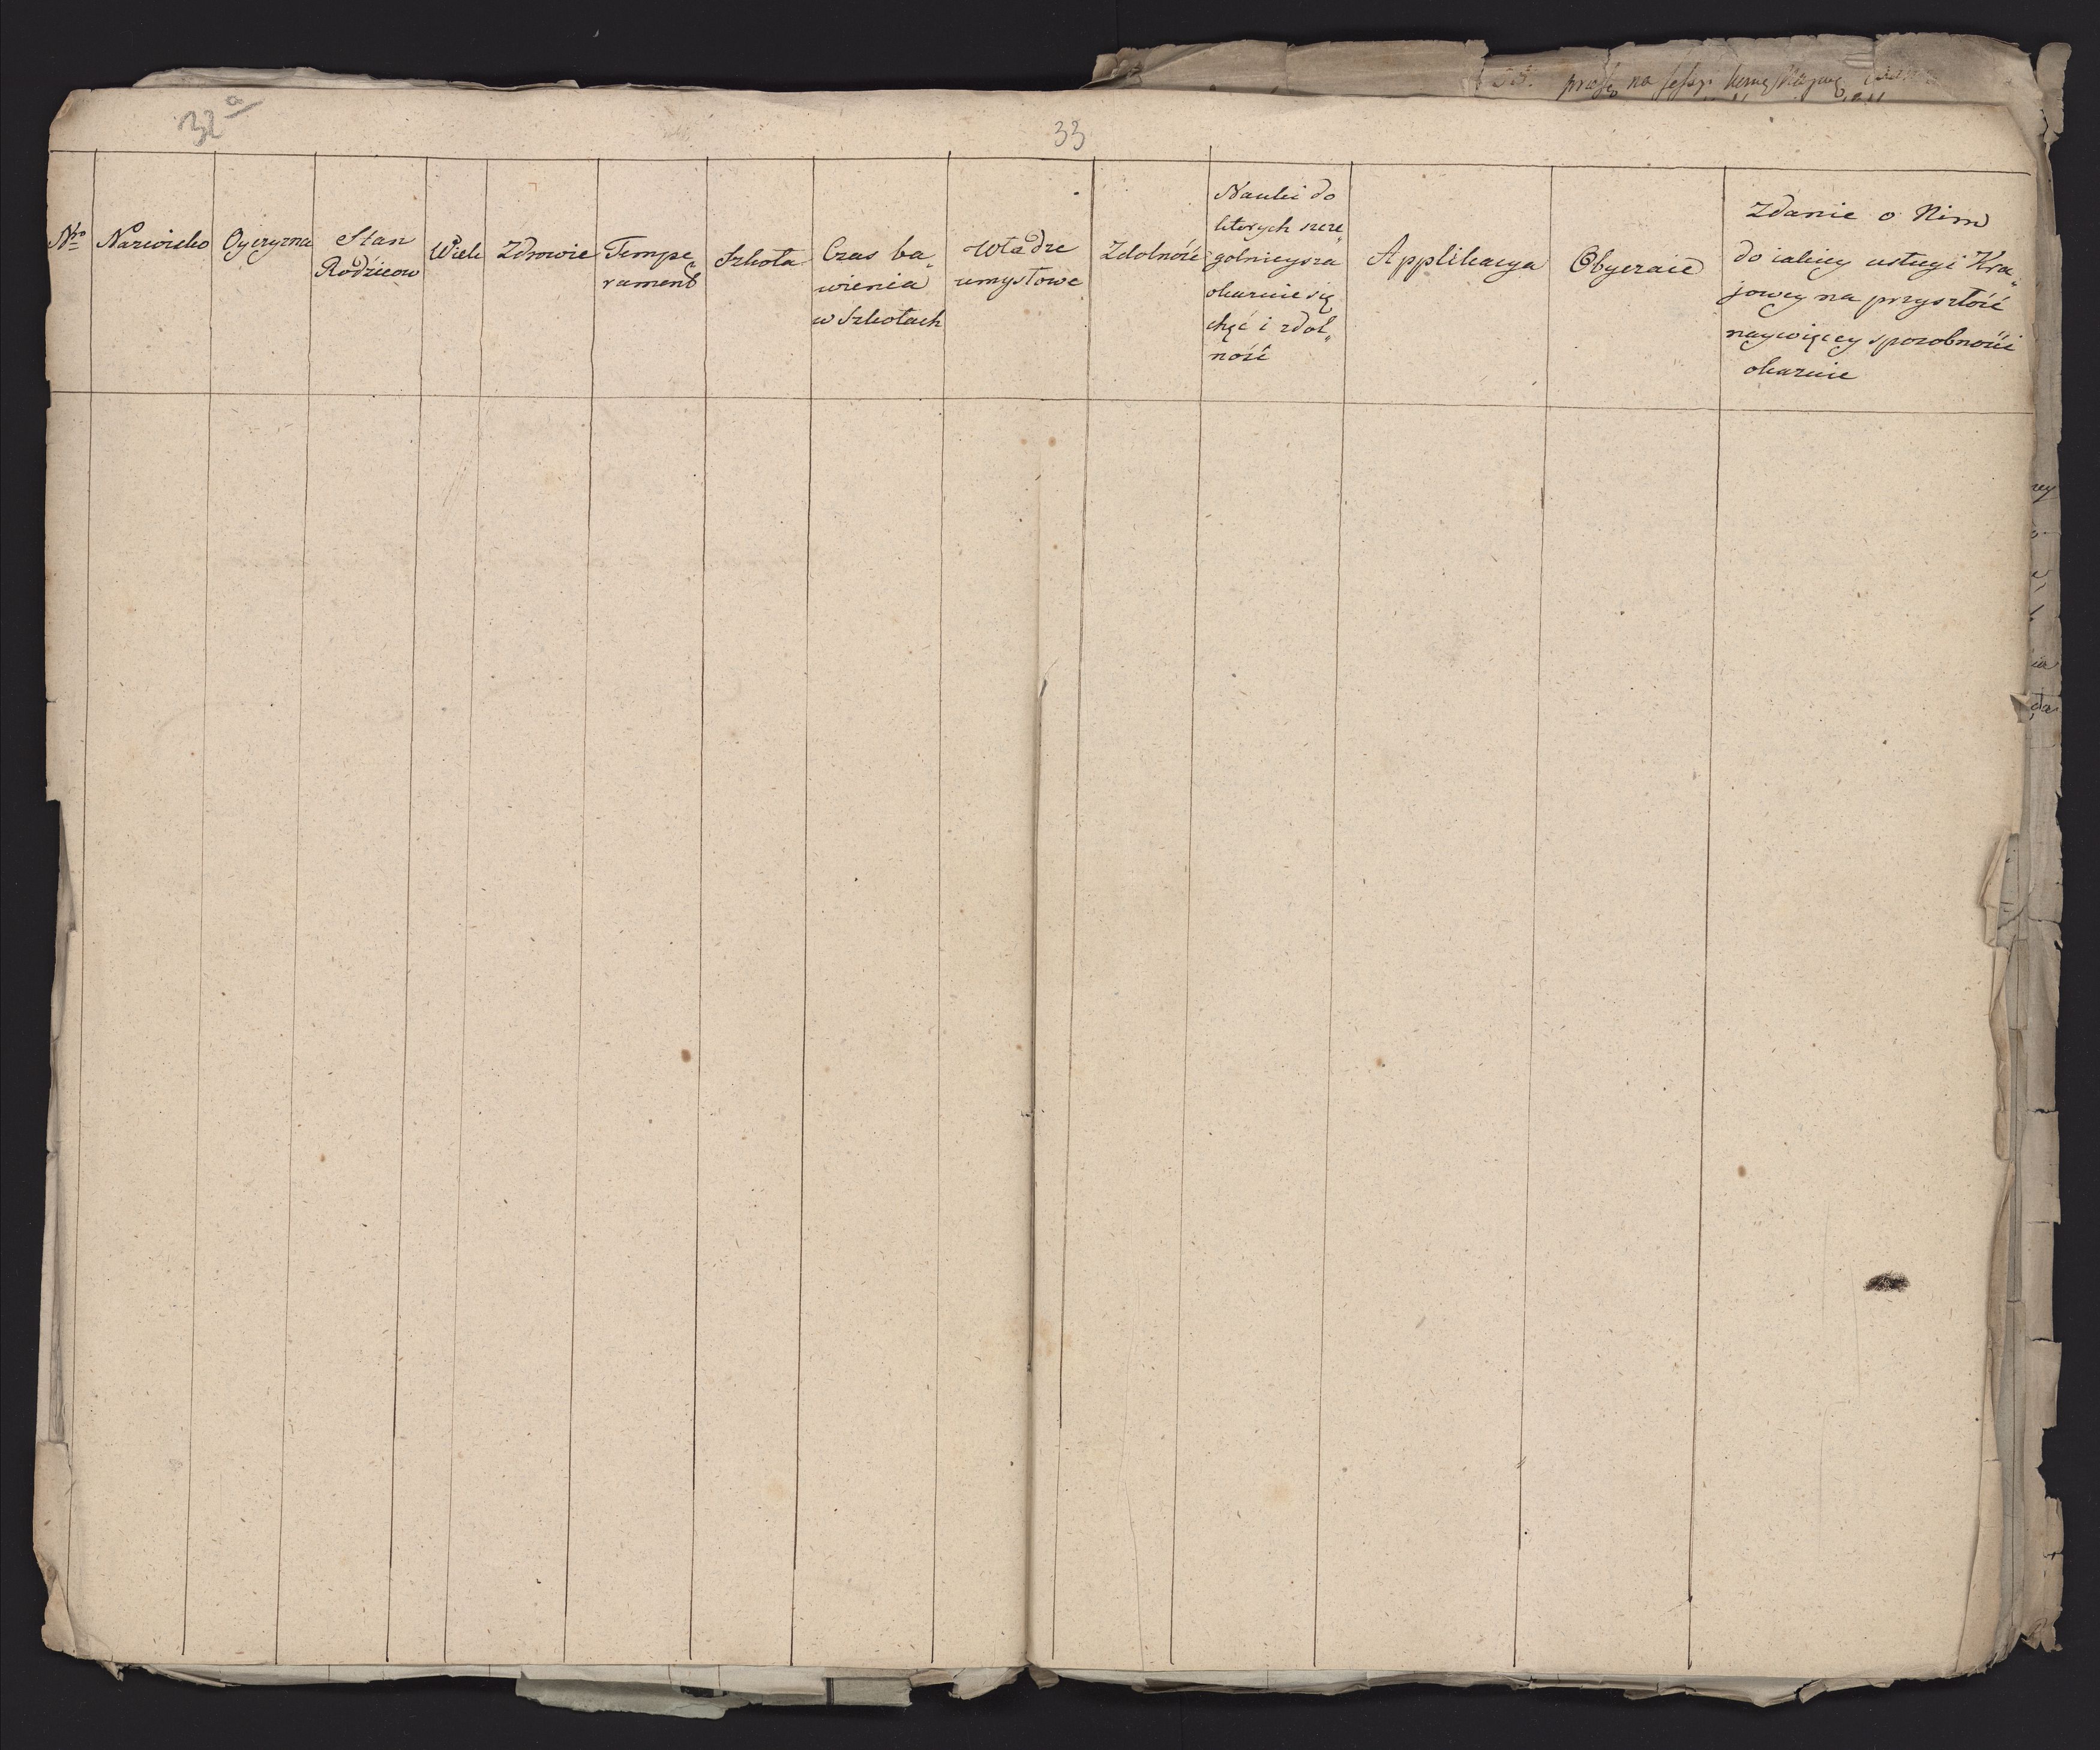 prosżę na sessyi
32 a
33
Nro
Nazwisko
Oyczyzna
Stan
Rodzicow
Wiek
Zdrowie
Tempe„
rament
Szkoła
Czas ba„
wienia
w Szkołach
Władze
umysłowe
Zdolność
Nauki do
ktorych szcze„
golnieysza
okazuie się
chęć i zdol„
ność
Applikacya
Obyczaie
Zdanie o Nim
do iakiey usługi Kra„
jowey na przyszłość
naywięcey sposobności
okazuie